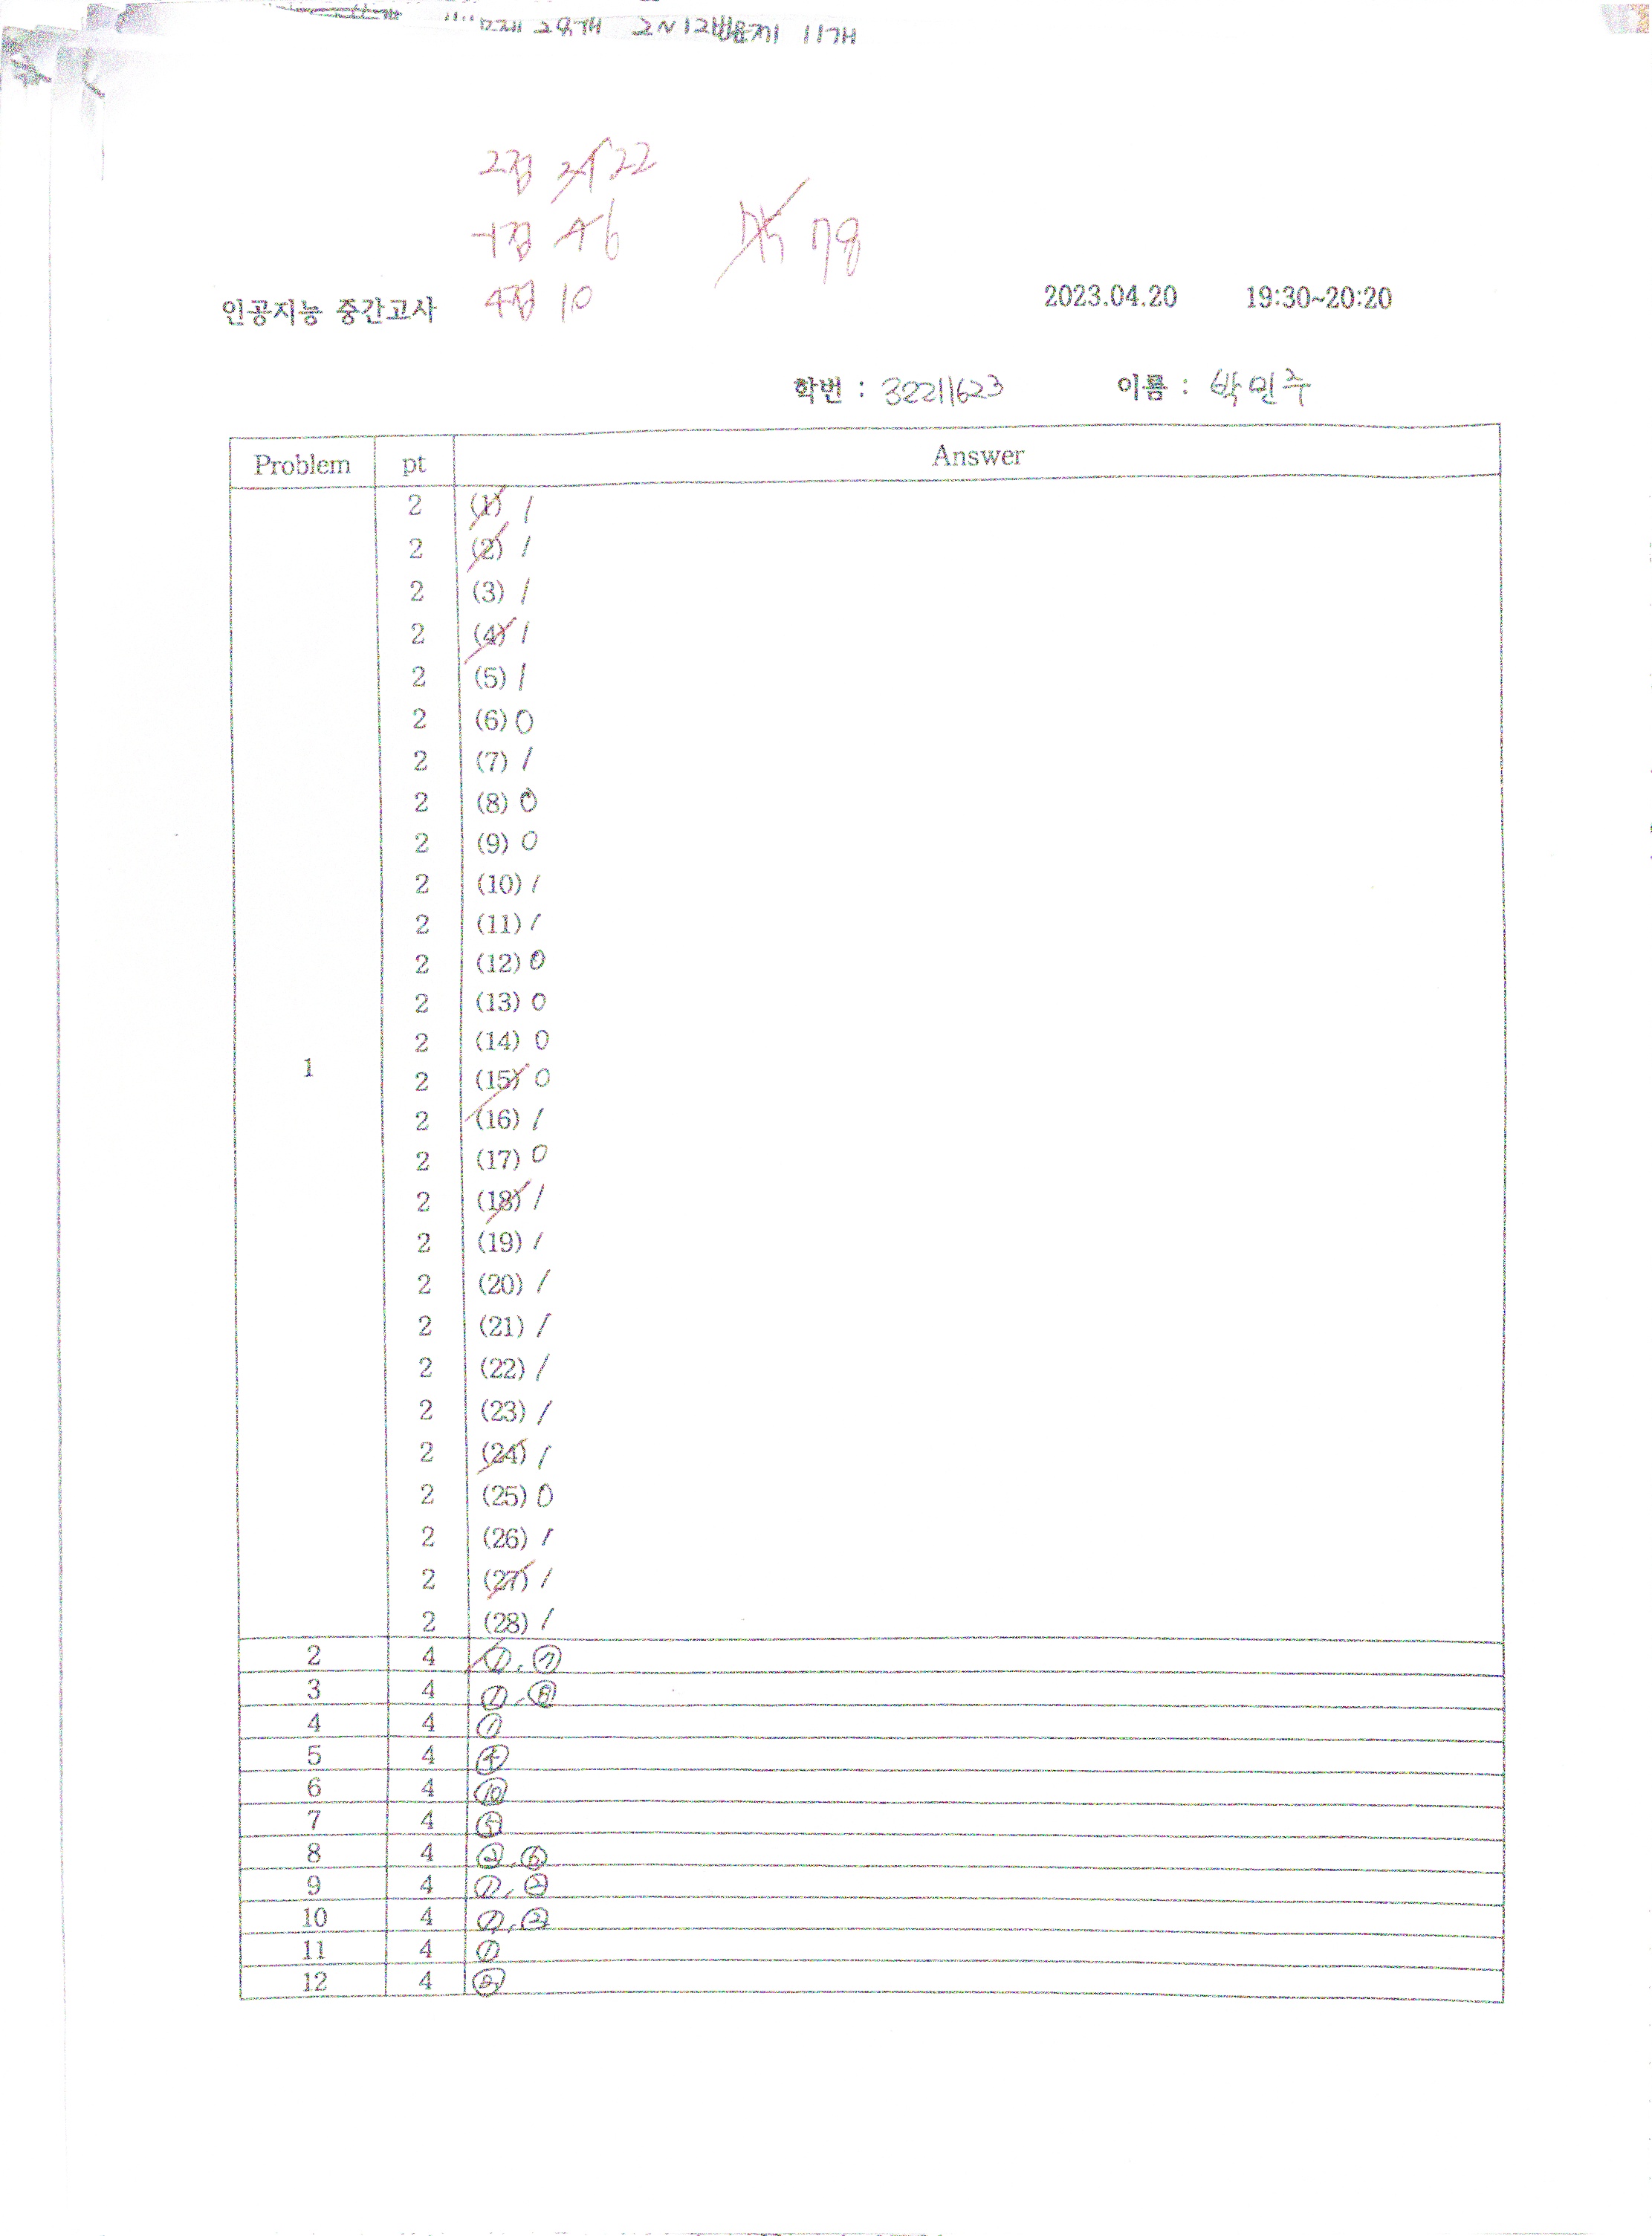 29개 2~12번문제 11개
2점 22
-1점 6
78
4점 10
인공지능 중간고사 2023.04.20 19:30~20:20
학번 : 32211623 이름 : 박민수
Problem pt Answer
1
2 (1) /
2 (2) /
2 (3) /
2 (4) /
2 (5) /
2 (6) 0
2 (7) /
2 (8) 0
2 (9) 0
2 (10) /
2 (11) /
2 (12) 0
2 (13) 0
2 (14) 0
2 (15) 0
2 (16) /
2 (17) 0
2 (18) /
2 (19) /
2 (20) /
2 (21) /
2 (22) /
2 (23) /
2 (24) /
2 (25) 0
2 (26) /
2 (27) /
2 (28) /
2 4 ①, ⑦
3 4 ①, ⑥
4 4 ①
5 4 ④
6 4 ⑩
7 4 ⑤
8 4 ②, ⑥
9 4 ①, ②
10 4 ①, ②
11 4 ①
12 4 ②